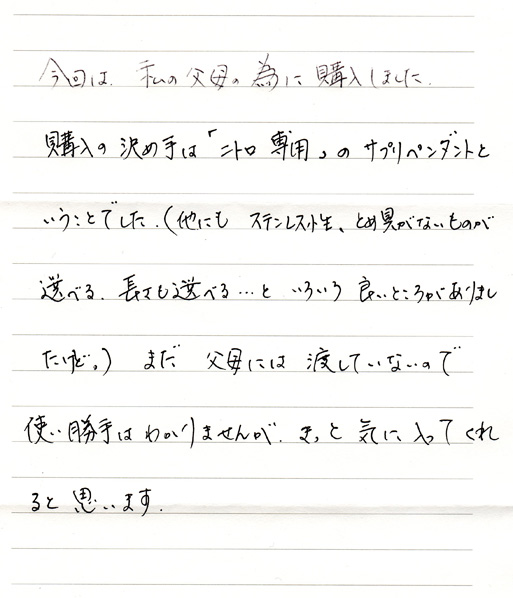 今回は、私の父母の為に購入しました。
購入の決め手は「ニトロ専用」のサプリペンダントと
いうことでした。(他にも ステンレス製、とめ具がないものが
選べる、長さも選べる…と いろいろ 良いところがありまし
たけど。) まだ 父母には 渡していないので
使い勝手はわかりませんが、きっと 気に入ってくれ
ると思います。